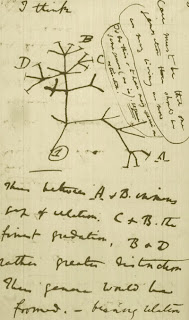 I think
B
D
C
①
A
Case must be that one
generation then should be
as many living as now
To do this & to have many species
in same genus (as is)
requires extinction
Thus between A & B. immense
gap of relation. C & B. the
finest gradation, B & D
rather greater distinction
Thus genera would be
formed. — bearing relation